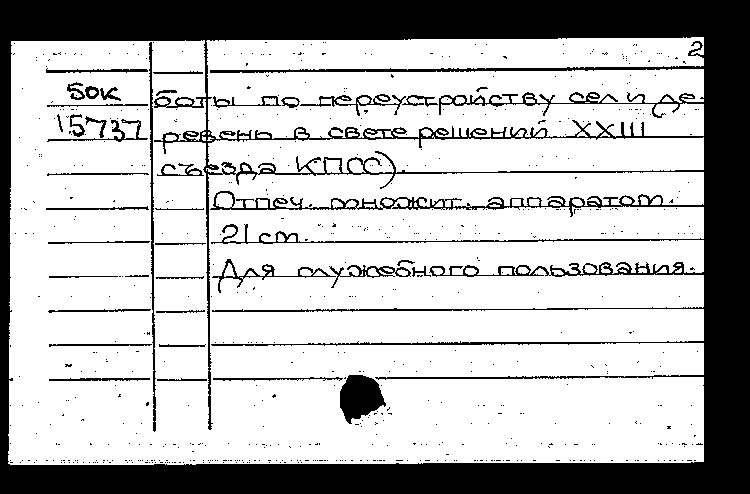 2
50к боты по переустройству сел и де-
15737 ревень в свете решений XXIII
съезда КПСС).
Отпеч. множит. аппаратом.
21 см.
Для служебного пользования.